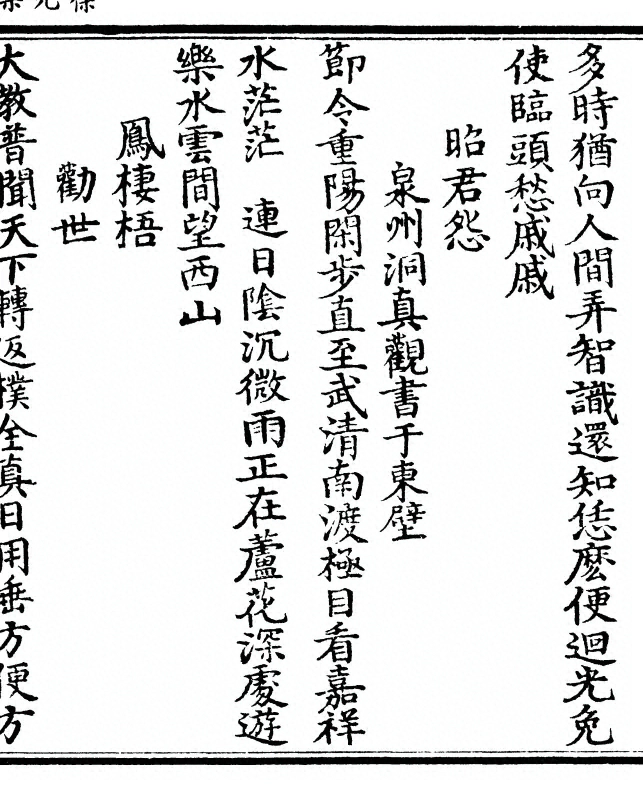 多時猶向人間弄智識還知恁麽便迴光免
使臨頭愁戚戚
昭君怨
泉州洞真觀書于東壁
節令重陽閑步直至武清南渡極目看嘉祥
水茫茫　連日陰沉微雨正在蘆花深處遊
樂水雲間望西山
鳳棲梧
勸世
大教普聞天下轉返樸全真日用垂方便方